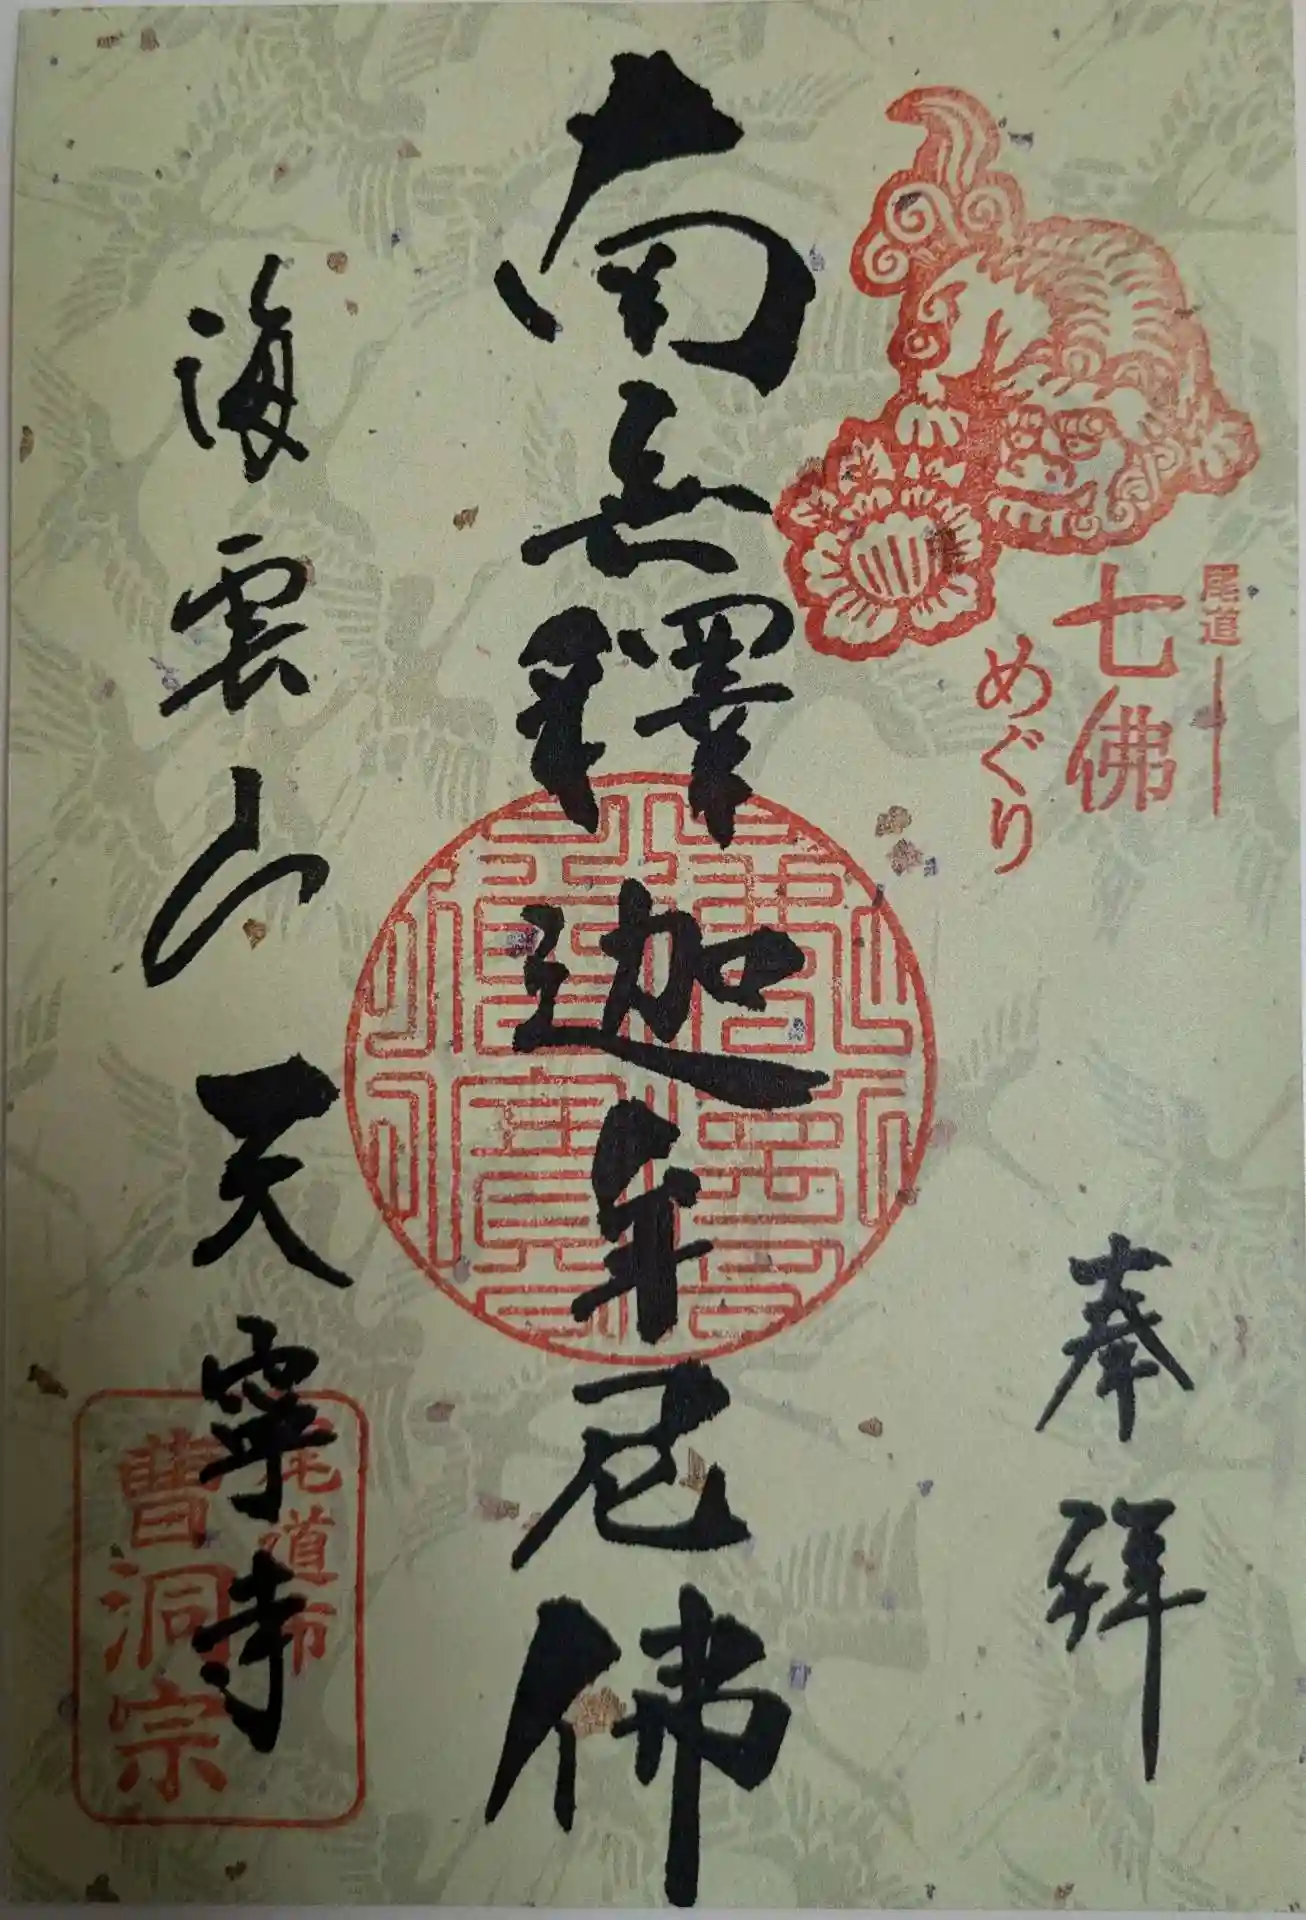 尾道
七佛
めぐり
奉拜
南無釋迦牟尼佛
海雲山天寧寺
尾道市
曹洞宗